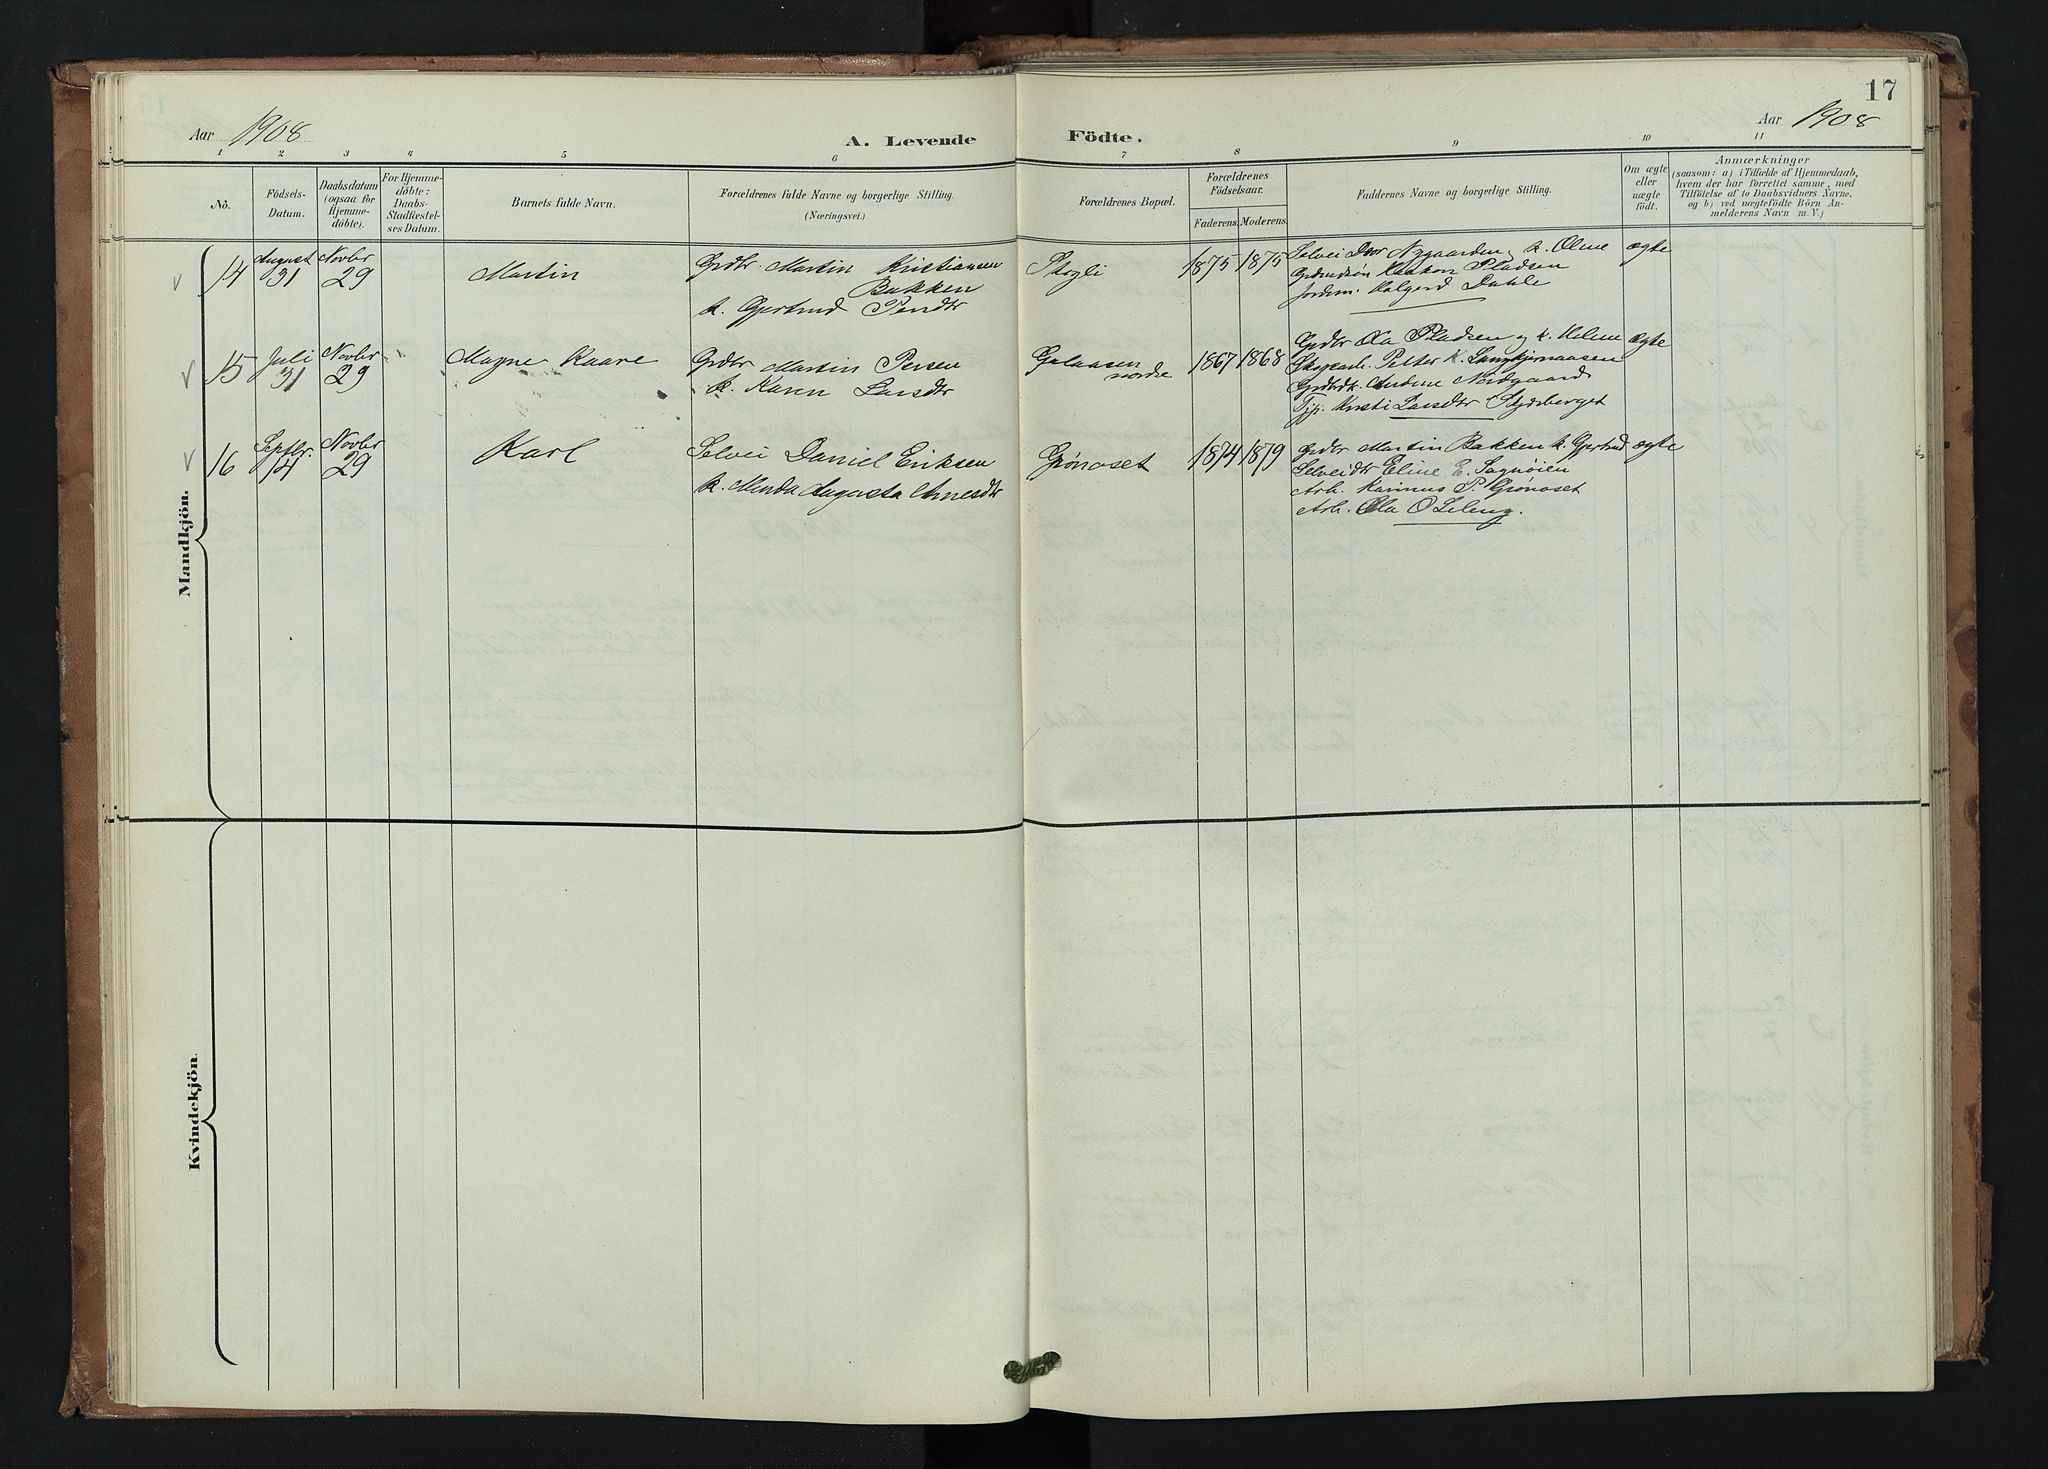 17
Aar 1908
A. Levende Födte.
Aar 1908
1 2 3 4 5 6 7 8 9 10 11
No. Födsels-Datum. Daabsdatum (ogsaa for Hjemmedöbte). For Hjemmedöbte: Daabs-Stadfæstelses Datum. Barnets fulde Navn. Forældrenes fulde Navne og borgerlige Stilling. (Næringsvei.) Forældrenes Bopæl. Forældrenes Födselsaar. Faderens. Moderens. Faddernes Navne og borgerlige Stilling. Om ægte eller uægte födt. Anmærkninger (saasom: a) i Tilfælde af Hjemmedaab, hvem der har forrettet samme, med Tilföielse af to Daabsvidners Navne, og b) ved uægtefödte Börn Anmelderens Navn m. V.)
Mandkjön.
14 August 31 Novbr 29 Martin Grdbr Martin Kristiansen
Bakken
k. Gjertrud Pendtr
1875 1875 Selvei Nygaarden k. Oline ægte
Haakon Pladsen
Jordm. Halgerd Dahle
15 Juli 31 Novbr 29 Magne Kaare Grdbr Martin Persen
k. Karen Larsdtr
Galaasen nordre
1867 1868 Grdbr Ola Pladsen og k. Helene ægte
Petter K. Langkjernaasen
Nordgaard
Tjp. Kristi Larsdtr Stydsberget
16 Septbr. 14 Novbr 29 Karl Selvei Daniel Eriksen
k. Minda Augusta Arnesdtr
Grönoset
1874 1879 Grdbr Martin Bakken k. Gjertrud ægte
Selveidtr Eline E. Sagnöien
Arb. Karinus P. Grönoset
Arb. Ola O Lileng.
Kvindekjön.